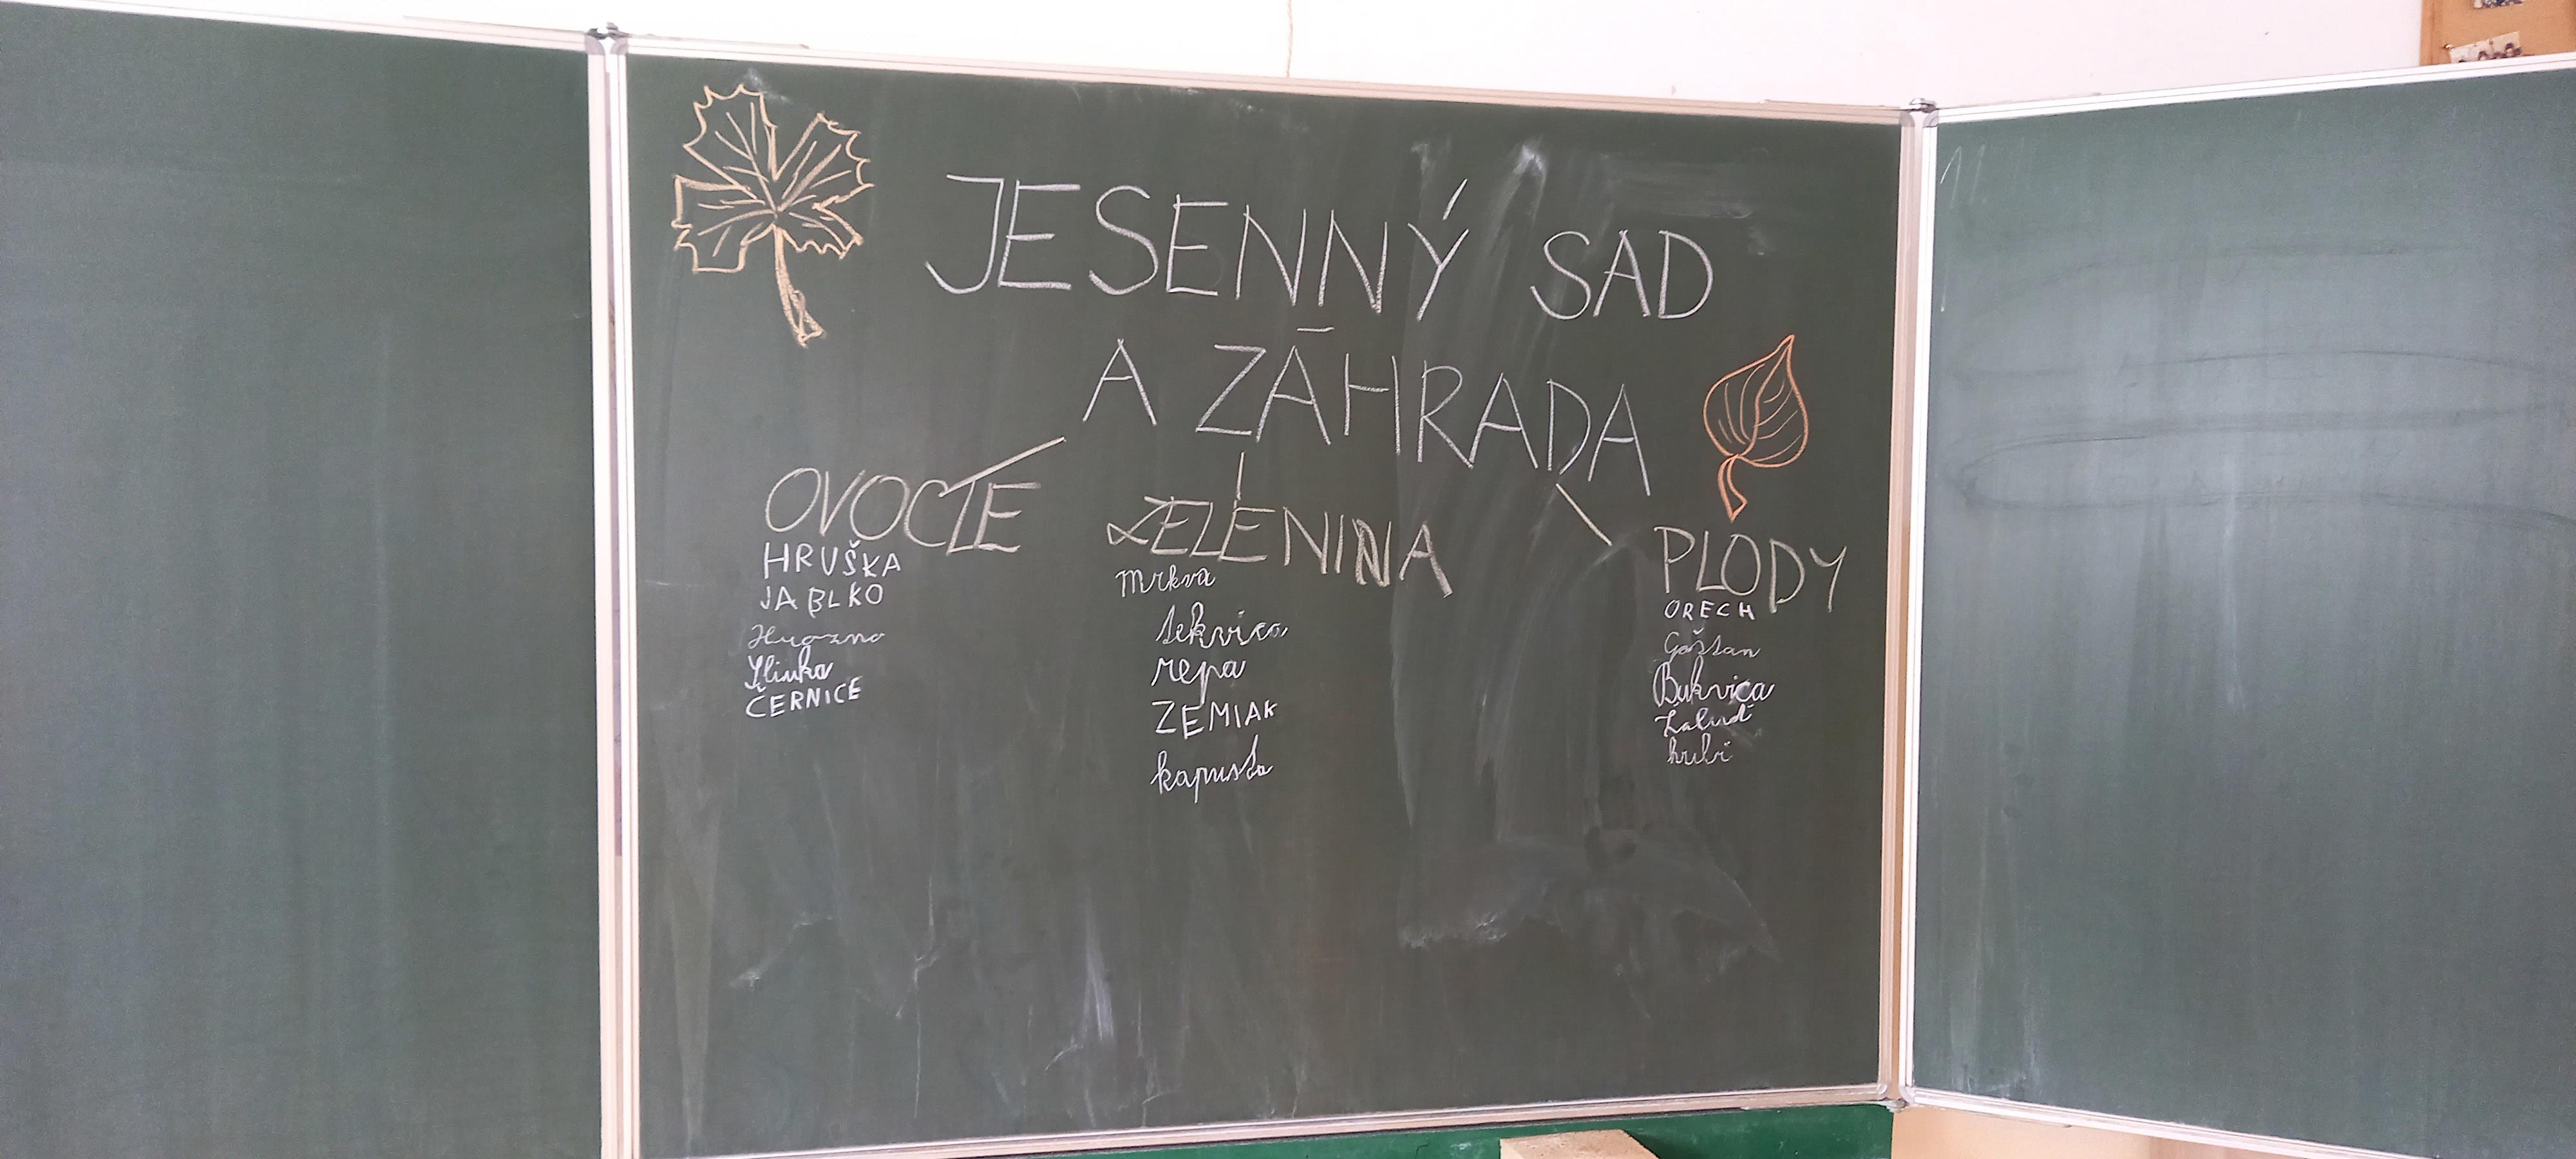 JESENNÝ SAD
A ZÁHRADA
OVOCIE
HRUŠKA
JABLKO
Slivka
ČERNICE
ZELENINA
Mrkva
tekvica
repa
ZEMIAK
kapusta
PLODY
ORECH
Gaštan
Bukvica
Žaluď